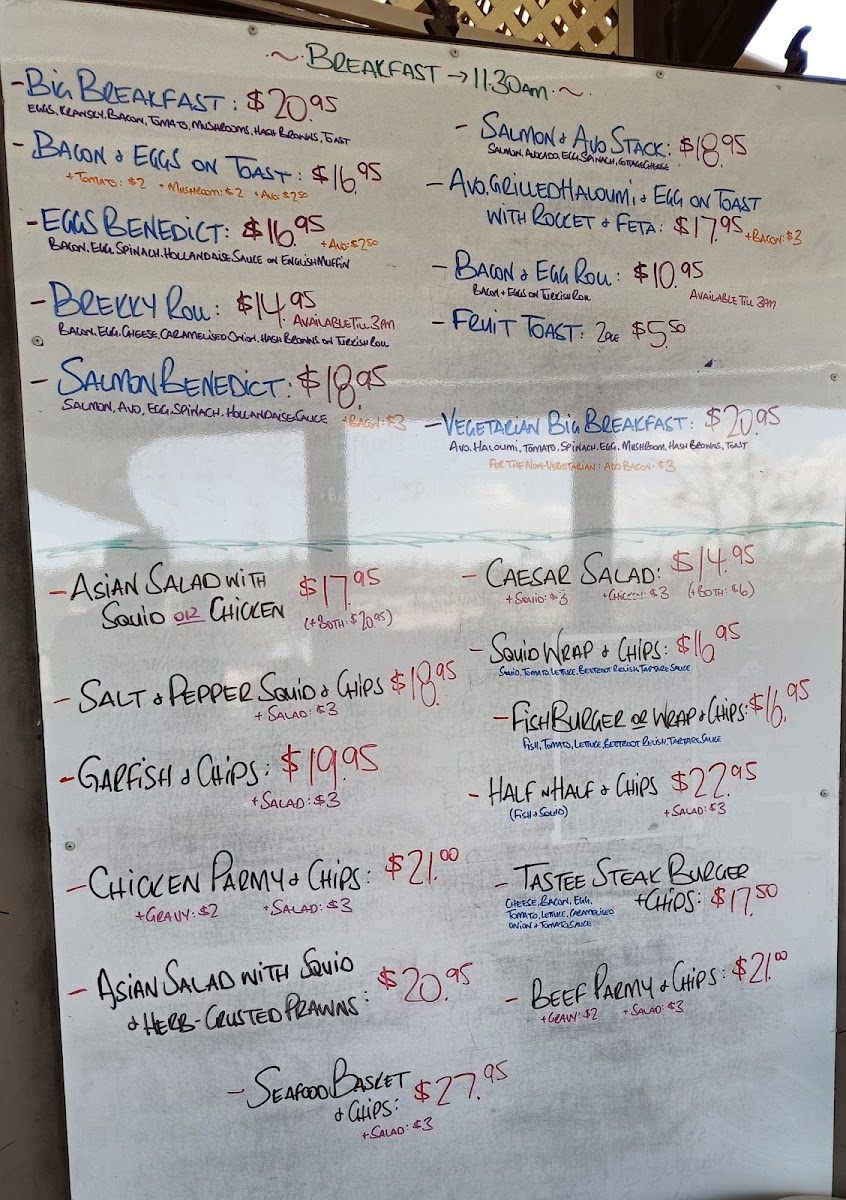 ~ BREAKFAST → 11:30AM ~
- BIG BREAKFAST: $20.95
EGGS, KRANSKY, BACON, TOMATO, MUSHROOMS, HASH BROWNS, TOAST
- BACON & EGGS ON TOAST: $16.95
+ TOMATO: $2 + MUSHROOM: $2 + AVO: $2.50
- EGGS BENEDICT: $16.95
+ AVO: $2.50
BACON, EGG, SPINACH, HOLLANDAISE SAUCE ON ENGLISH MUFFIN
- BREKKY ROLL: $14.95
AVAILABLE TILL 3PM
BACON, EGG, CHEESE, CARAMELISED ONION, HASH BROWNS ON TURKISH ROLL
- SALMON BENEDICT: $18.95
SALMON, AVO, EGG, SPINACH, HOLLANDAISE SAUCE + BACON: $3
- SALMON & AVO STACK: $18.95
SALMON, AVOCADO, EGG, SPINACH, COTTAGE CHEESE
- AVO, GRILLED HALOUMI, & EGG ON TOAST
WITH ROCKET & FETA: $17.95 + BACON: $3
- BACON & EGG ROLL: $10.95
BACON + EGGS ON TURKISH ROLL
AVAILABLE TILL 3PM
- FRUIT TOAST: 2PCE $5.50
- VEGETARIAN BIG BREAKFAST: $20.95
AVO, HALOUMI, TOMATO, SPINACH, EGG, MUSHROOM, HASH BROWNS, TOAST
FOR THE NON-VEGETARIAN: ADD BACON - $3
- ASIAN SALAD WITH $17.95
SQUID OR CHICKEN (+ BOTH: $20.95)
- SALT & PEPPER SQUID & CHIPS $18.95
+ SALAD: $3
- GARFISH & CHIPS: $19.95
+ SALAD: $3
- CHICKEN PARMY & CHIPS: $21.00
+ GRAVY: $2 + SALAD: $3
- ASIAN SALAD WITH SQUID
& HERB-CRUSTED PRAWNS: $20.95
- CAESAR SALAD: $14.95
+ SQUID: $3 + CHICKEN: $3 (+ BOTH: $6)
- SQUID WRAP & CHIPS: $16.95
SQUID, TOMATO, LETTUCE, BEETROOT RELISH, TARTARE SAUCE
- FISH BURGER OR WRAP & CHIPS: $16.95
FISH, TOMATO, LETTUCE, BEETROOT RELISH, TARTARE SAUCE
- HALF N HALF & CHIPS $22.95
(FISH & SQUID) + SALAD: $3
- TASTEE STEAK BURGER
+ CHIPS: $17.50
CHEESE, BACON, EGG,
TOMATO, LETTUCE, CARAMELISED
ONION & TOMATO SAUCE
- BEEF PARMY & CHIPS: $21.00
+ GRAVY: $2 + SALAD: $3
- SEAFOOD BASKET
& CHIPS: $27.95
+ SALAD: $3